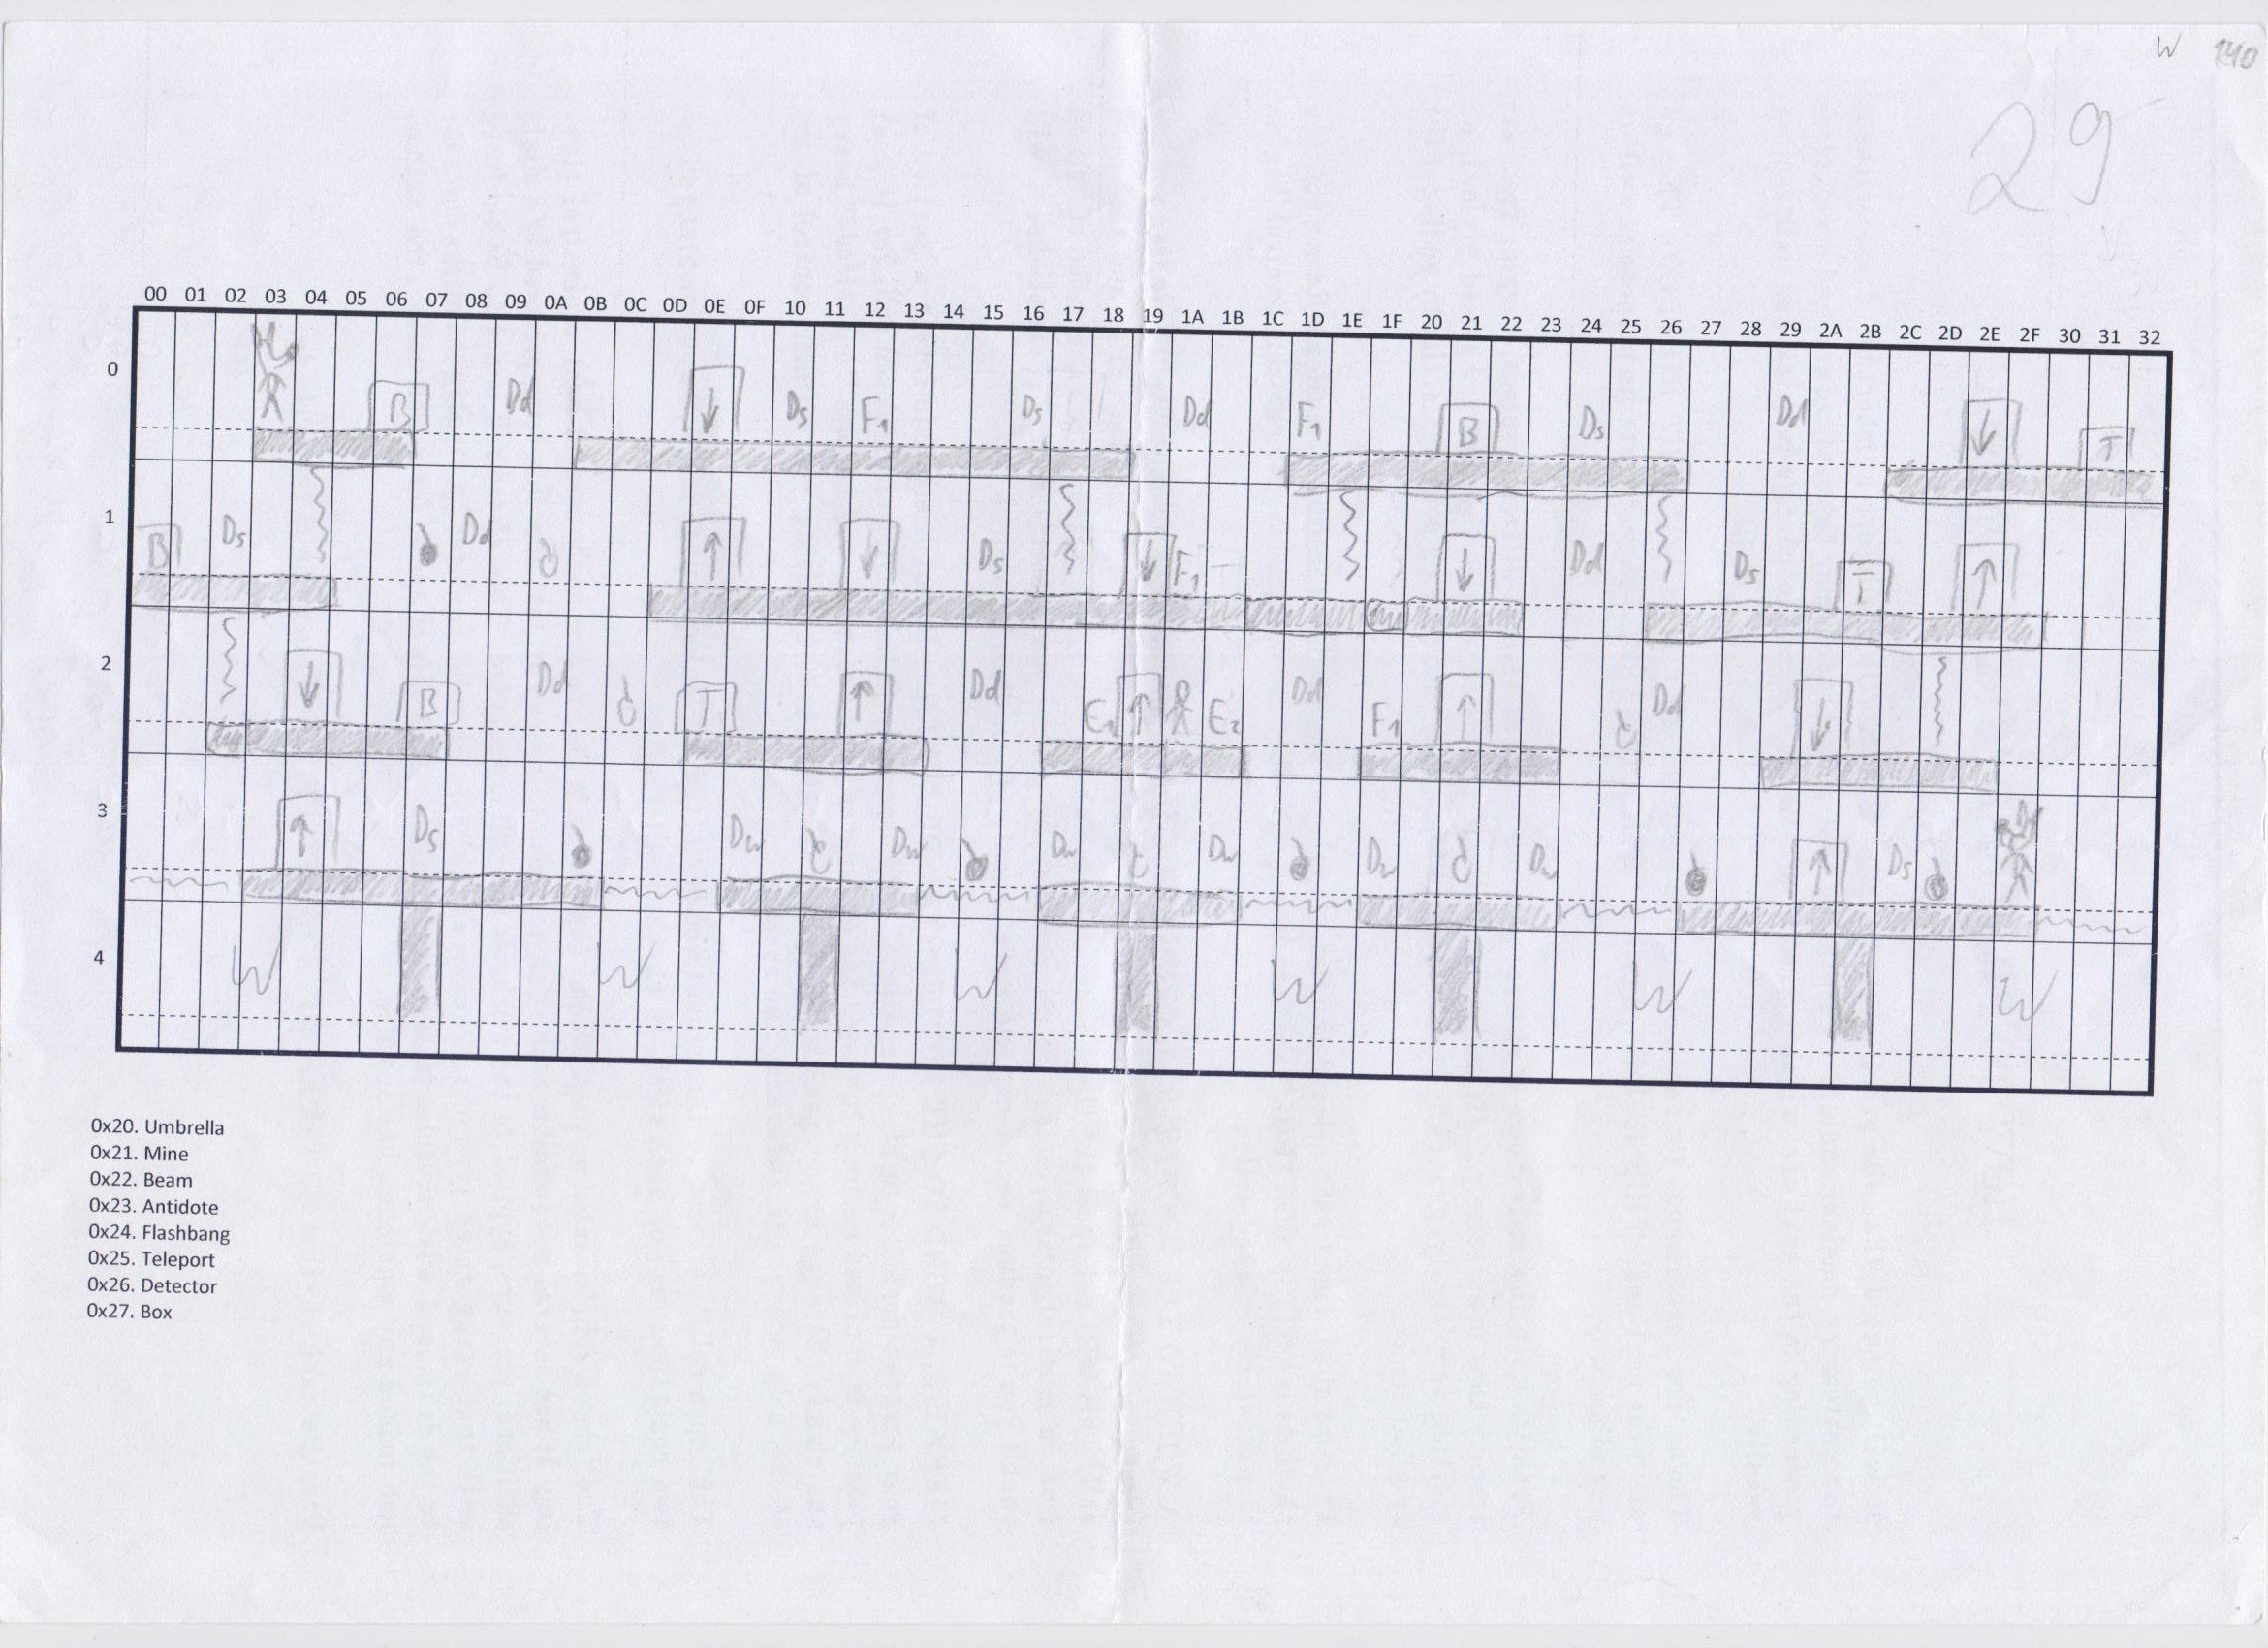 W 140
29
00 01 02 03 04 05 06 07 08 09 0A 0B 0C 0D 0E 0F 10 11 12 13 14 15 16 17 18 19 1A 1B 1C 1D 1E 1F 20 21 22 23 24 25 26 27 28 29 2A 2B 2C 2D 2E 2F 30 31 32
0
B Dd Ds F1 Ds Dd F1 B Ds Dd T
1
B Ds Dd Ds F1 Dd Ds T
2
B Dd T Dd E1 E2 Dd F1 Dd
3
Ds Dw Dw Dw Dw Dw Dw Ds
4
W W W W W W
0x20. Umbrella
0x21. Mine
0x22. Beam
0x23. Antidote
0x24. Flashbang
0x25. Teleport
0x26. Detector
0x27. Box